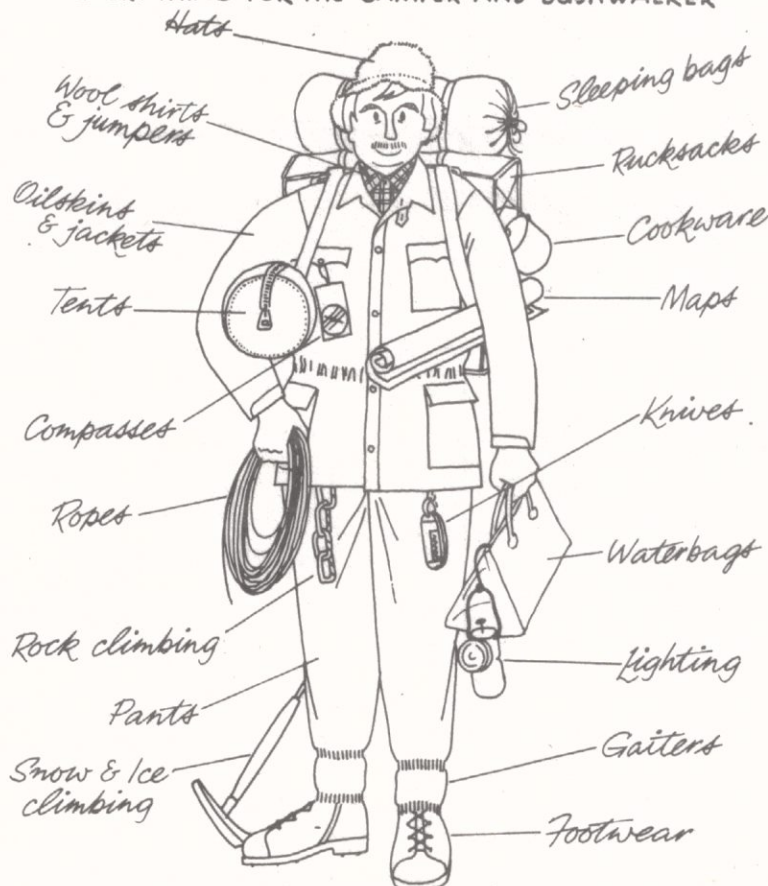 FOR THE CAMPER AND BUSHWALKER
Hats
Wool shirts
& jumpers
Oilskins
& jackets
Tents
Compasses
Ropes
Rock climbing
Pants
Snow & Ice
climbing
Sleeping bags
Rucksacks
Cookware
Maps
Knives.
Waterbags
Lighting
Gaiters
Footwear